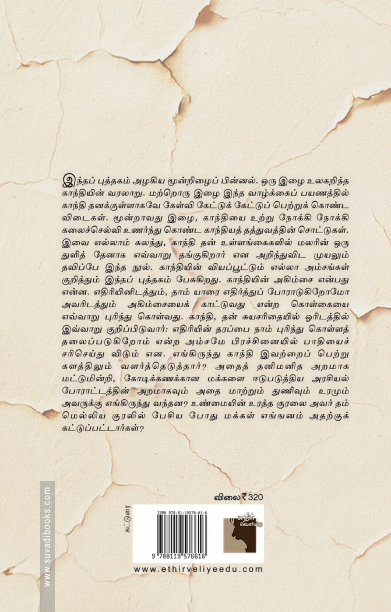 இந்தப் புத்தகம் அழகிய மூன்றிழைப் பின்னல். ஒரு இழை உலகறிந்த
காந்தியின் வரலாறு. மற்றொரு இழை இந்த வாழ்க்கைப் பயணத்தில்
காந்தி தனக்குள்ளாகவே கேள்வி கேட்டுக் கேட்டுப் பெற்றுக் கொண்ட
விடைகள். மூன்றாவது இழை, காந்தியை உற்று நோக்கி நோக்கி
கலைச்செல்வி உணர்ந்து கொண்ட காந்தியத் தத்துவத்தின் சொட்டுகள்.
இவை எல்லாம் கலந்து, காந்தி தன் உள்ளங்கைகளில் மலரின் ஒரு
துளித் தேனாக எவ்வாறு தங்குகிறார் என அறிந்துவிட முயலும்
தவிப்பே இந்த நூல். காந்தியின் வியப்பூட்டும் எல்லா அம்சங்கள்
குறித்தும் இந்தப் புத்தகம் பேசுகிறது. காந்தியின் அகிம்சை என்பது
என்ன. எதிரியினிடத்தும், தாம் யாரை எதிர்த்துப் போராடுகிறோமோ
அவரிடத்தும் அகிம்சையைக் காட்டுவது என்ற கொள்கையை
எவ்வாறு புரிந்து கொள்வது. காந்தி, தன் சுயசரிதையில் ஓரிடத்தில்
இவ்வாறு குறிப்பிடுவார்: எதிரியின் தரப்பை நாம் புரிந்து கொள்ளத்
தலைப்படுகிறோம் என்ற அம்சமே பிரச்சினையில் பாதியைச்
சரிசெய்து விடும் என. எங்கிருந்து காந்தி இவற்றைப் பெற்று
களத்திலும் வளர்த்தெடுத்தார்? அதைத் தனிமனித அறமாக
மட்டுமின்றி, கோடிக்கணக்கான மக்களை ஈடுபடுத்திய அரசியல்
போராட்டத்தின் அறமாகவும் அதை மாற்றும் துணிவும் உரமும்
அவருக்கு எங்கிருந்து வந்தன? உண்மையின் உரத்த குரலை அவர் தம்
மெல்லிய குரலில் பேசிய போது மக்கள் எங்ஙனம் அதற்குக்
கட்டுப்பட்டார்கள்?
விலை ₹ 320
கட்டுரை
ISBN 978-81-19576-61-6
9 788119 576616
www.ethirveliyeedu.com
www.suvadibooks.com